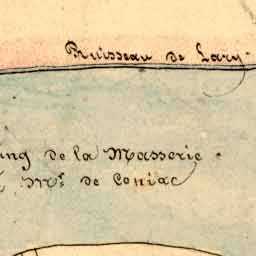 Ruisseau de Lary.
ing de la Masserie.
Mr. de Coniac